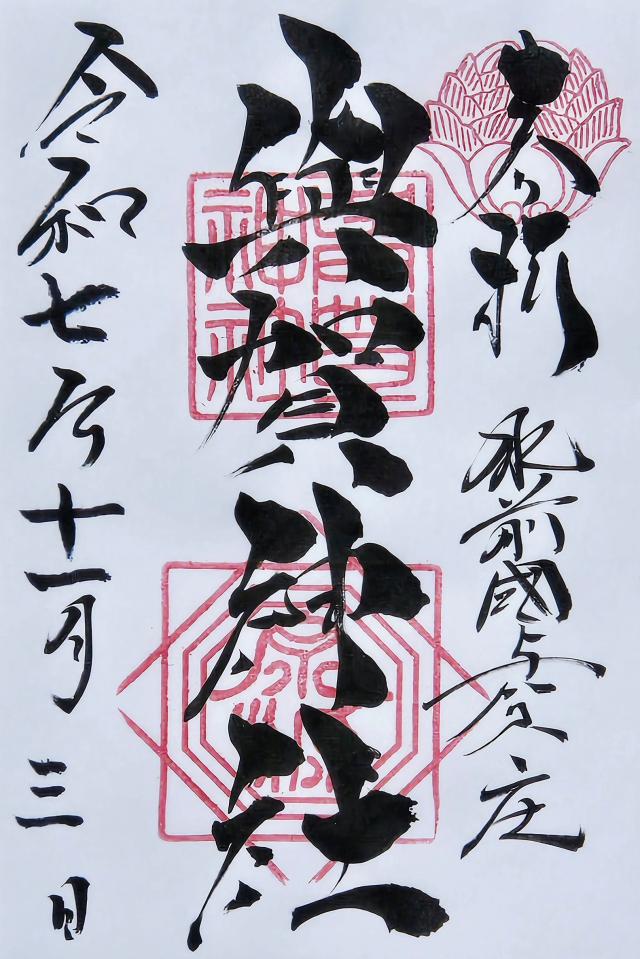 奉拝
肥前國与賀庄
與賀神社
令和七年十一月三日
與賀
神社